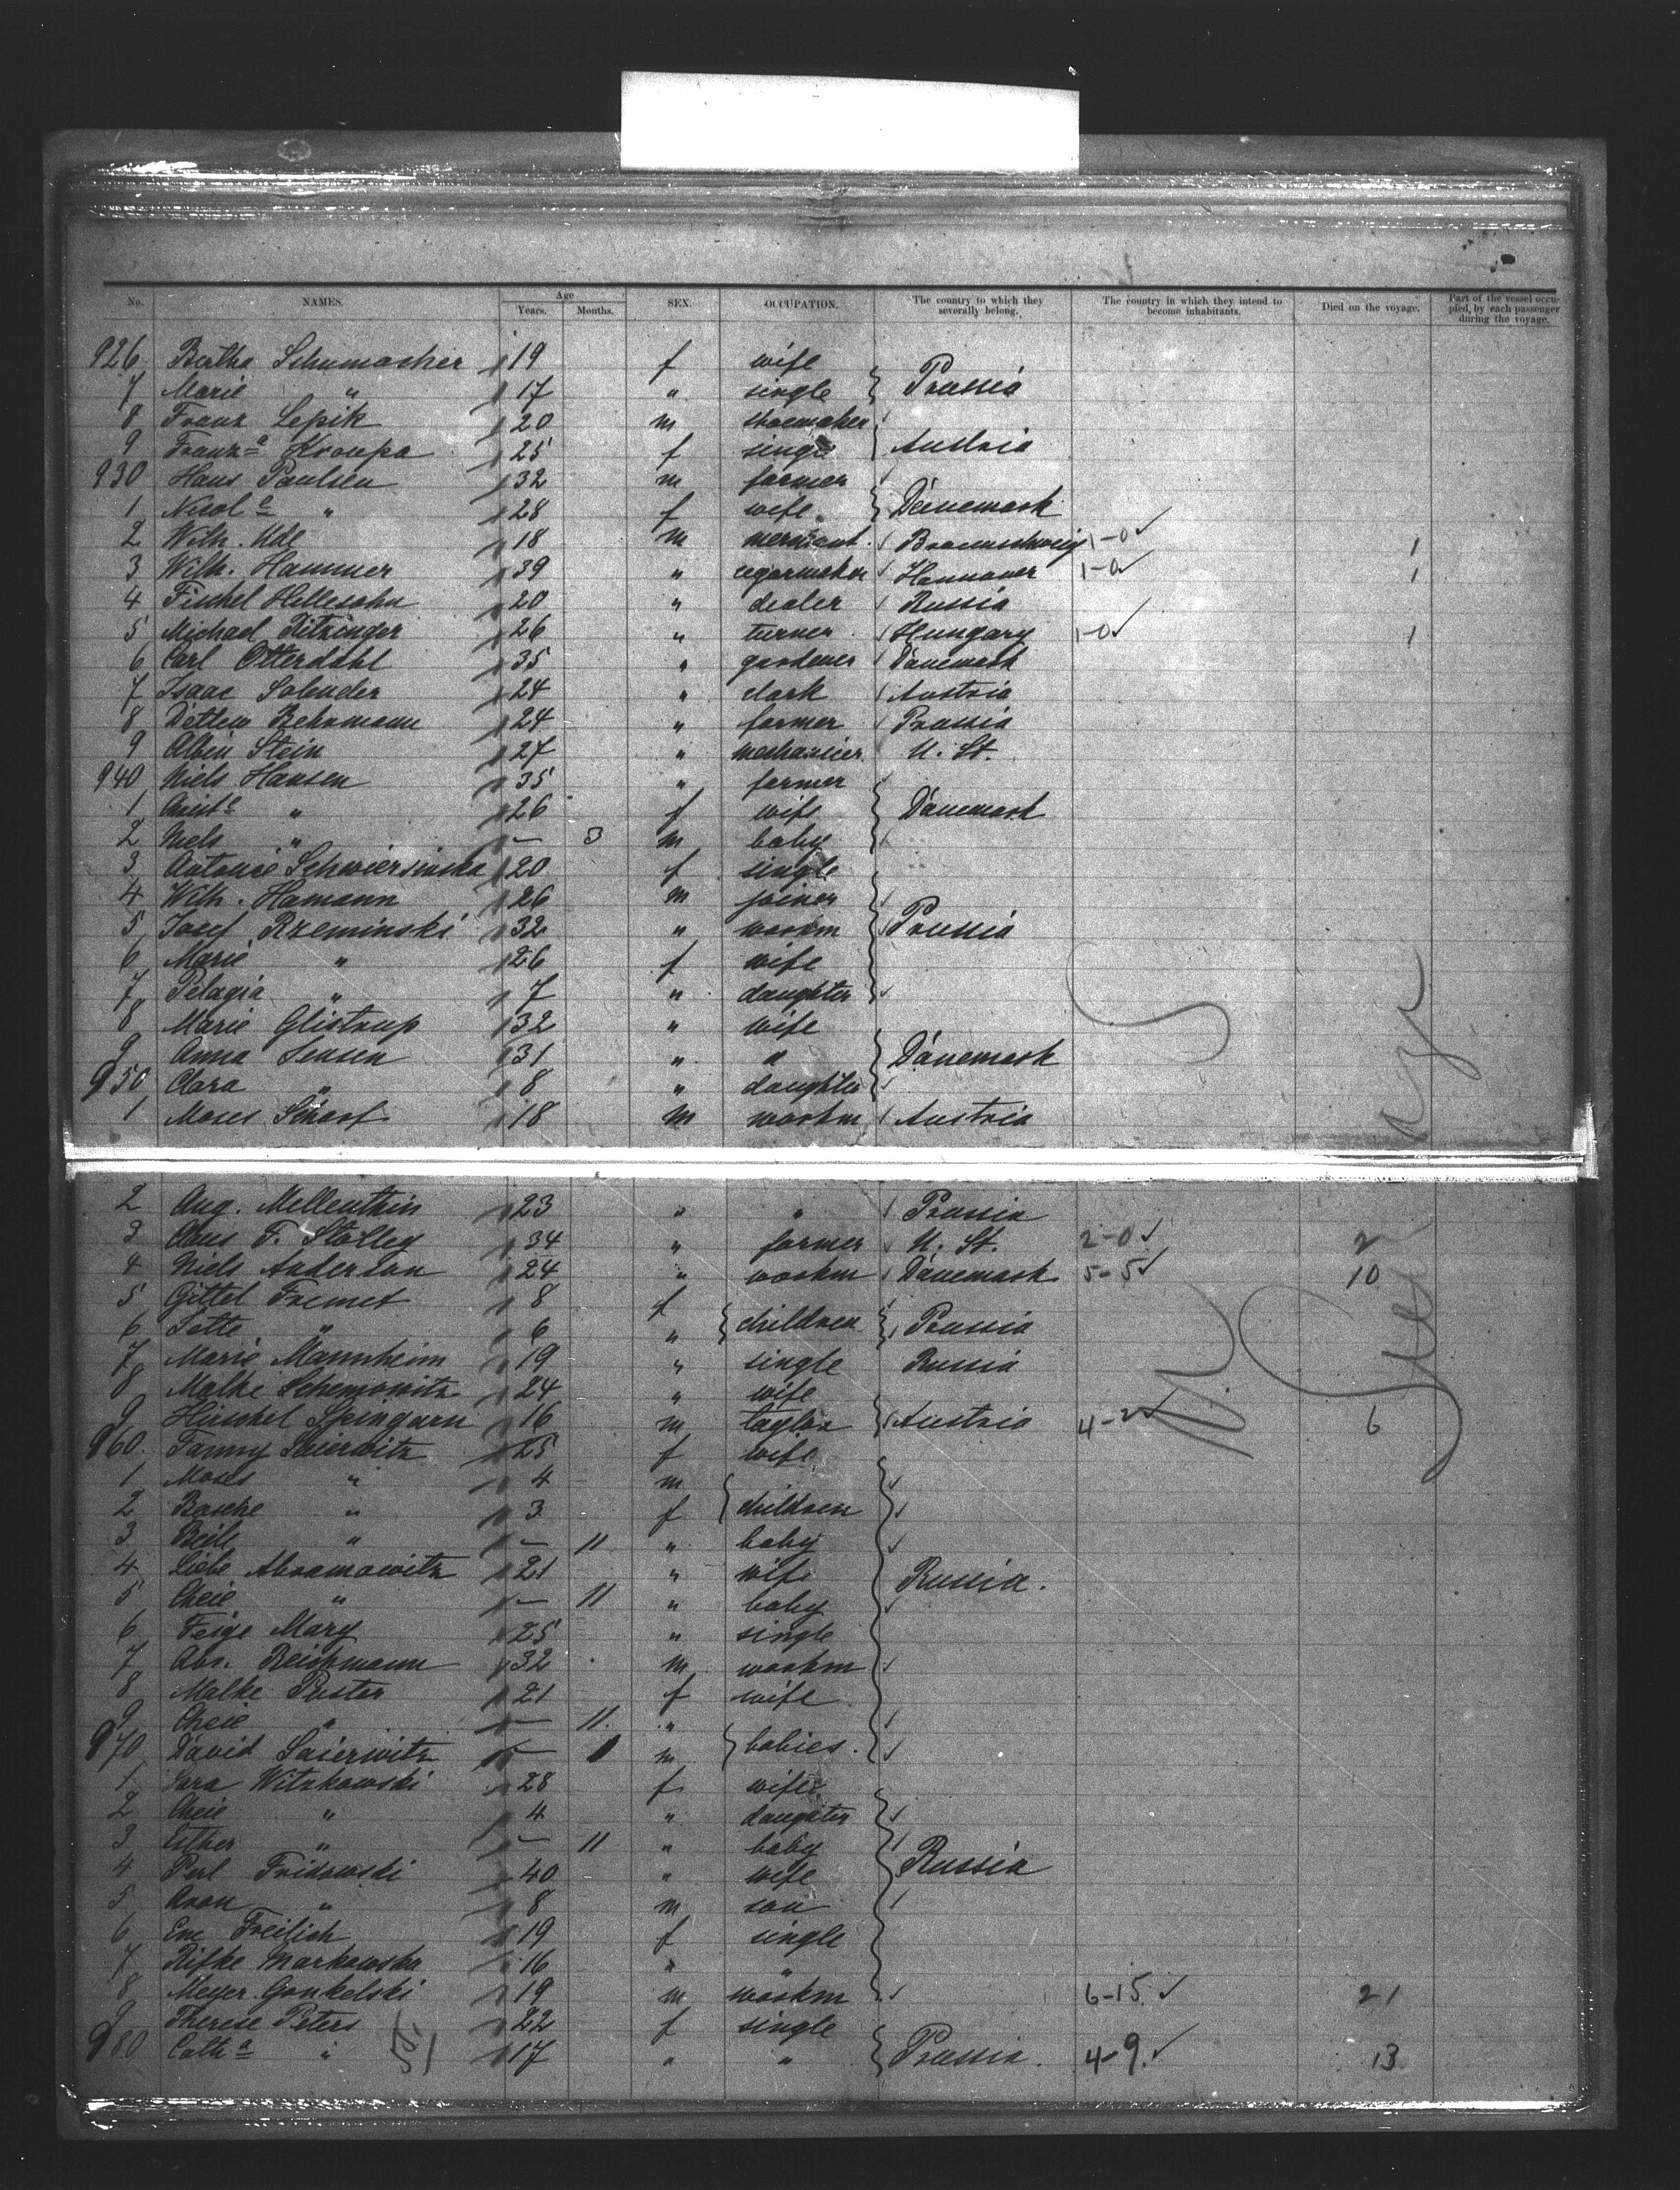 No. NAMES. Age Years. Months. SEX. OCCUPATION. The country to which they severally belong. The country in which they intend to become inhabitants. Died on the voyage. Part of the vessel occupied, by each passenger during the voyage.
926 Bertha Schumacher 19 f wife
7 Marie " 17 " single Prussia
8 Franz Lepik 20 m shoemaker
9 Franz a Kroupa 25 f single Austria
930 Hans Paulsen 32 m farmer
1 Nicol e " 28 f wife Dänemark
2 Wilh. Uhe 18 m merchant Braunschweig 1-0 1
3 Wilh. Hammer 39 " cigarmaker Hannover 1-0 1
4 Fischel Hillesohn 20 " dealer Russia
5 Michael Ritzinger 26 " turner Hungary 1-0 1
6 Carl Otterdahl 35 " gardener Dänemark
7 Isaac Salender 24 " clark Austria
8 Detlew Behrmann 24 " farmer Prussia
9 Albin Stein 27 " mechanicer U. St.
940 Niels Hansen 35 " farmer
1 Christ e " 26 f wife Dänemark
2 Niels " - 3 m baby
3 Antonie Schwiersinska 20 f single
4 Wilh. Hamann 26 m joiner
5 Josef Rzeminski 32 " workm Prussia
6 Marie " 26 f wife
7 Pelagia " 7 " daughter
8 Marie Glistrup 32 " wife
9 Anna Jensen 31 " " Dänemark
950 Clara " 8 " daughter
1 Moses Scharf 18 m workm Austria
2 Aug. Mellenthin 23 " " Prussia
3 Claus F. Stolley 34 " farmer U. St. 2-0 2
4 Niels Anderson 24 " workm Dänemark 5-5 10
5 Gittel Fremet 8 f
6 Jette " 6 " children Prussia
7 Marie Mannheim 19 " single Russia
8 Malke Schemowitz 24 " wife
9 Hirschel Spingarn 16 m taylor Austria 4-2 6
960 Fanny Saierwitz 25 f wife
1 Moses " 4 m
2 Basche " 3 f children
3 Beile " - 11 " baby
4 Liebe Abramowitz 21 " wife Russia.
5 Cheie " - 11 " baby
6 Feige Mary 25 " single
7 Abr. Reichmann 32 m workm
8 Malke Puster 21 f wife
9 Cheie " - 11 "
970 David Saierwitz - m babies
1 Sara Witzkowski 28 f wife
2 Cheie " 4 " daughter
3 Esther " - 11 " baby
4 Perl Fridowski 40 " wife Russia
5 Aron " 8 m son
6 Eve Freilich 19 f single
7 Rifke Markowska 16 " "
8 Meyer Gonkelski 19 m workm 6-15 21
9 Therese Peters 22 f single
980 Cath a " 17 " " Prussia. 4-9 13